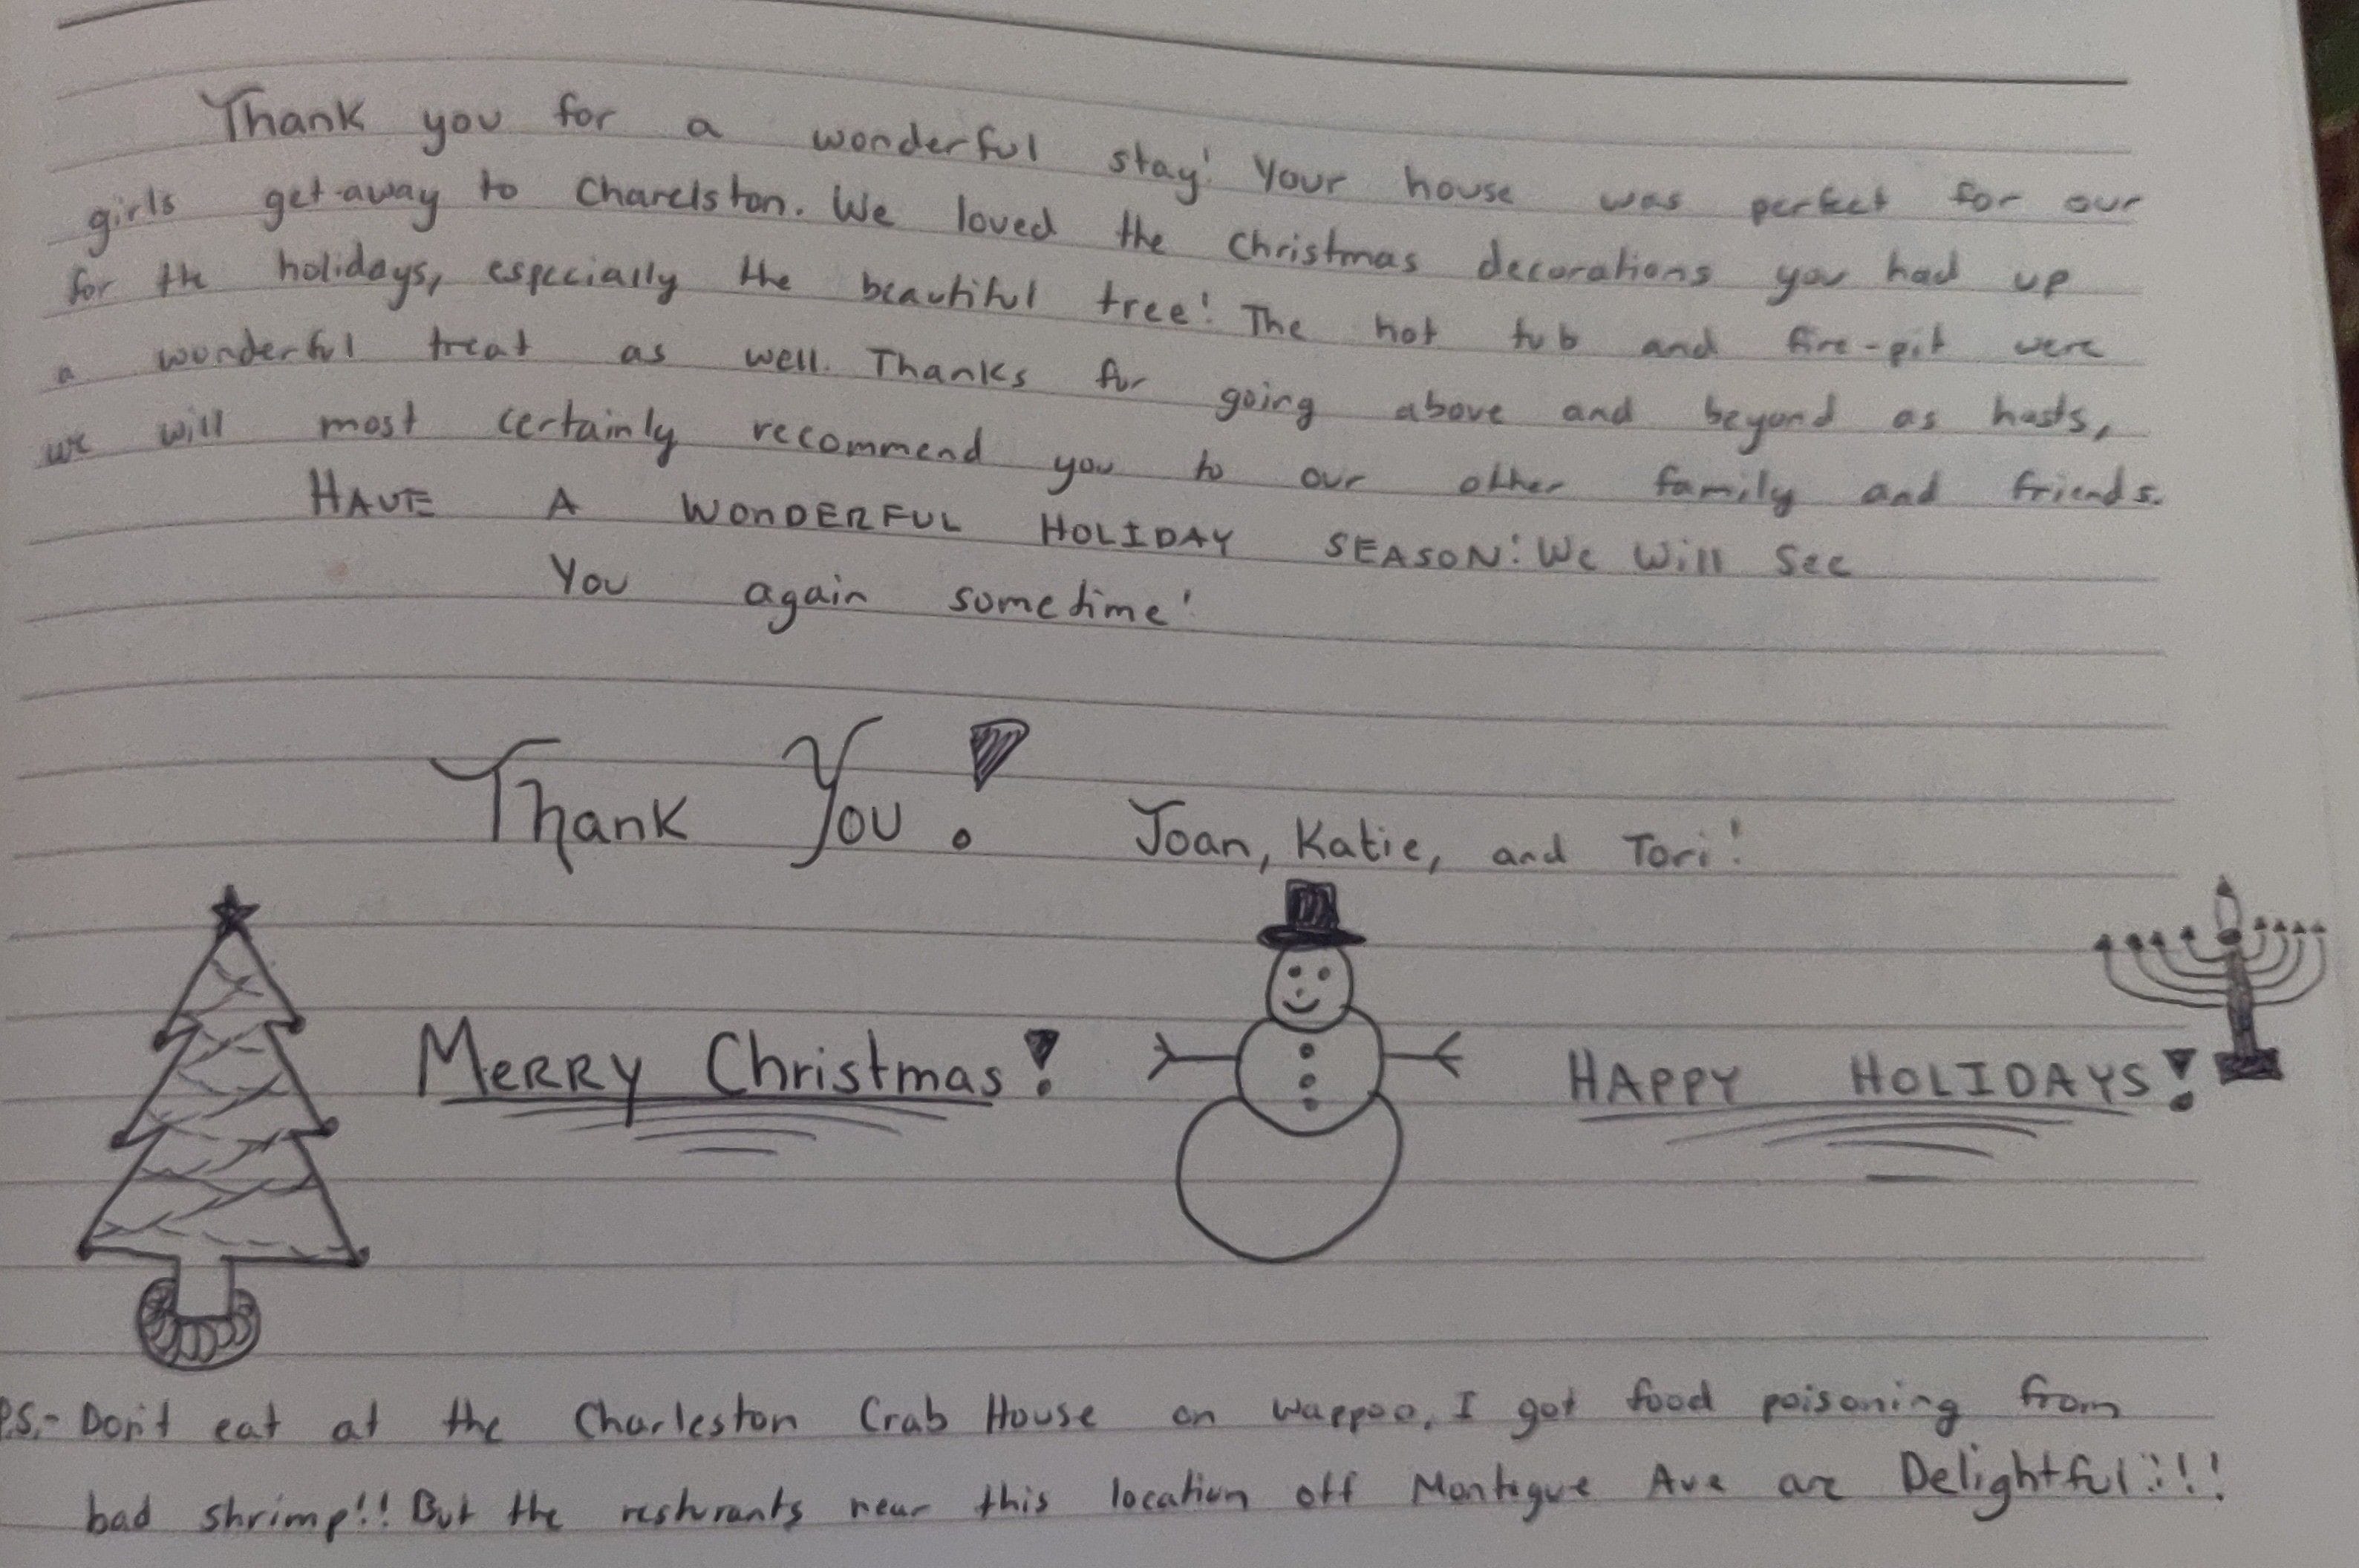 Thank you for a wonderful stay! Your house was perfect for our
girls get-away to Charelston. We loved the Christmas decorations you had up
for the holidays, especially the beautiful tree! The hot tub and fire-pit were
a wonderful treat as well. Thanks for going above and beyond as hosts,
we will most certainly recommend you to our other family and friends.
HAVE A WONDERFUL HOLIDAY SEASON! We Will See
You again sometime!
Thank You! Joan, Katie, and Tori!
MERRY Christmas! HAPPY HOLIDAYS!
P.S.- Don't eat at the Charleston Crab House on Wappoo, I got food poisoning from
bad shrimp!! But the resturants near this location off Montegue Ave are Delightful!!!!